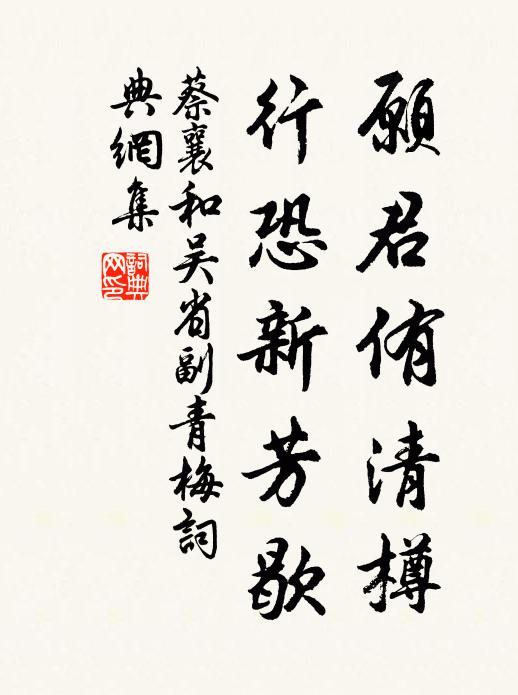 願君侑清樽
行恐新芳歇
蔡襄和吴省副青梅詞
典網集
詞典
网印